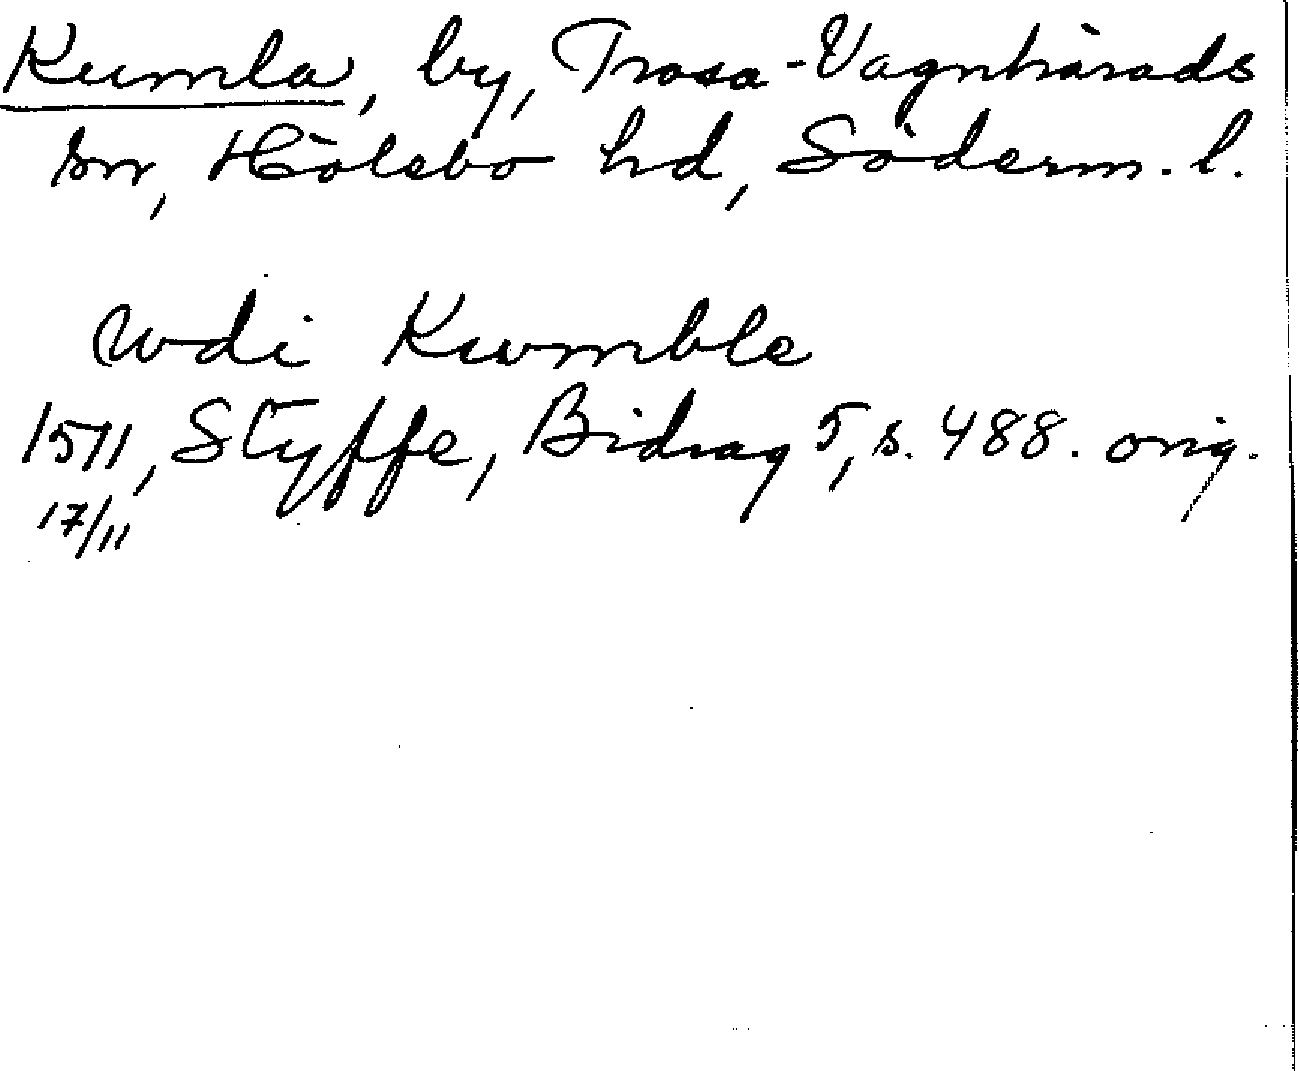 Kumla, by, Trosa-Vagnhärads
sn, Hölebo hd, Söderm. l.
wdi Kwmble
1511, Styffe, Bidrag 5, s. 488. orig.
17/11